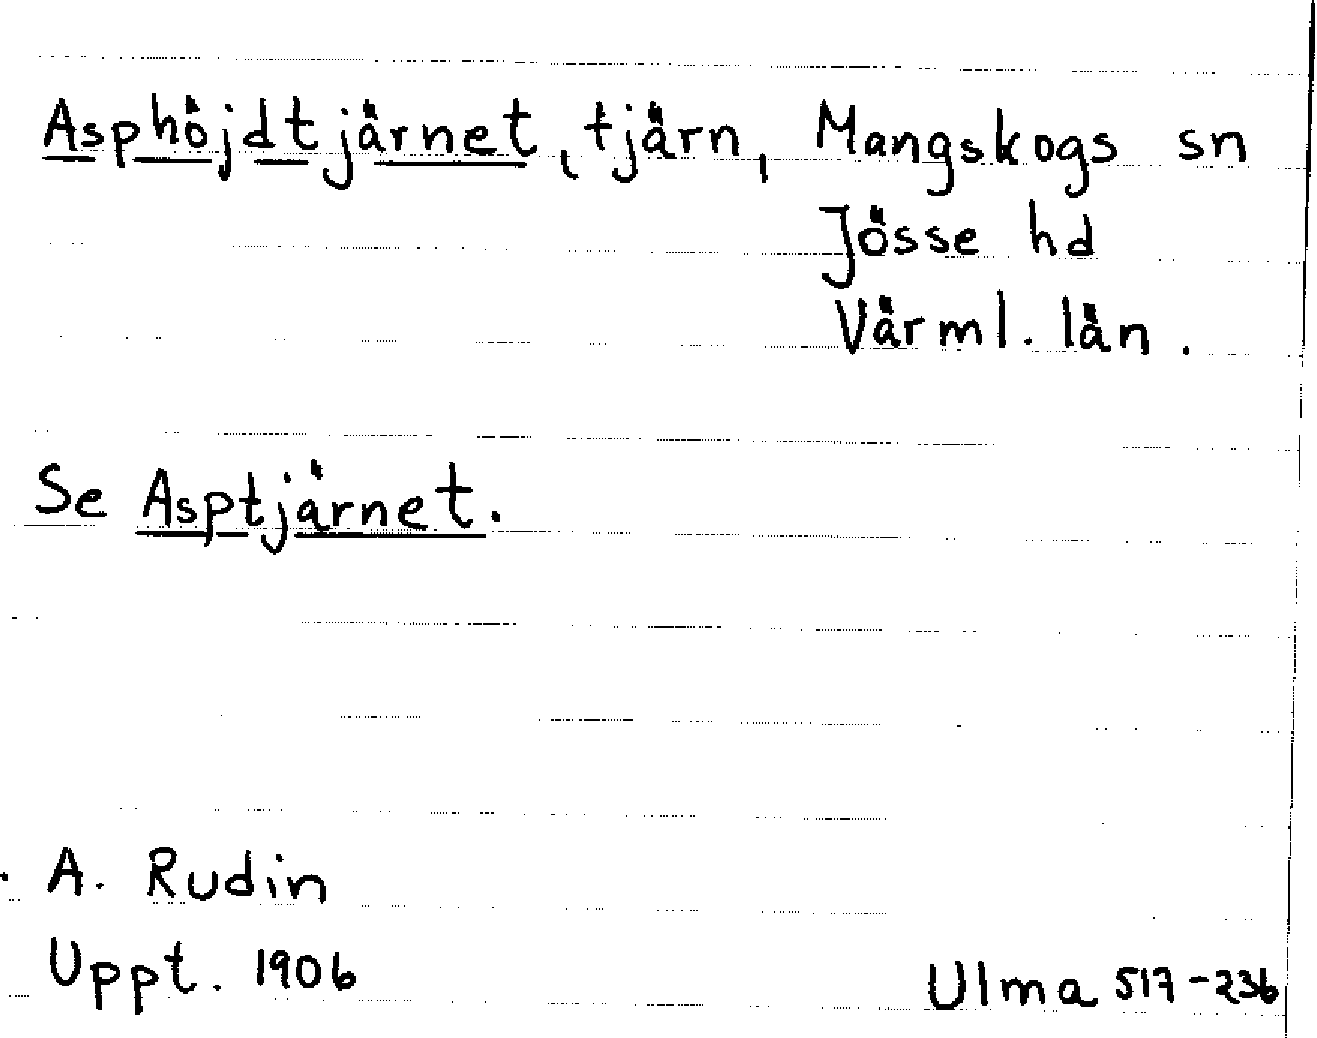 Asphöjdtjärnet, tjärn, Mangskogs sn
Jösse hd
Värml. län.
Se Asptjärnet.
A. Rudin
Uppt. 1906
Ulma 517-236